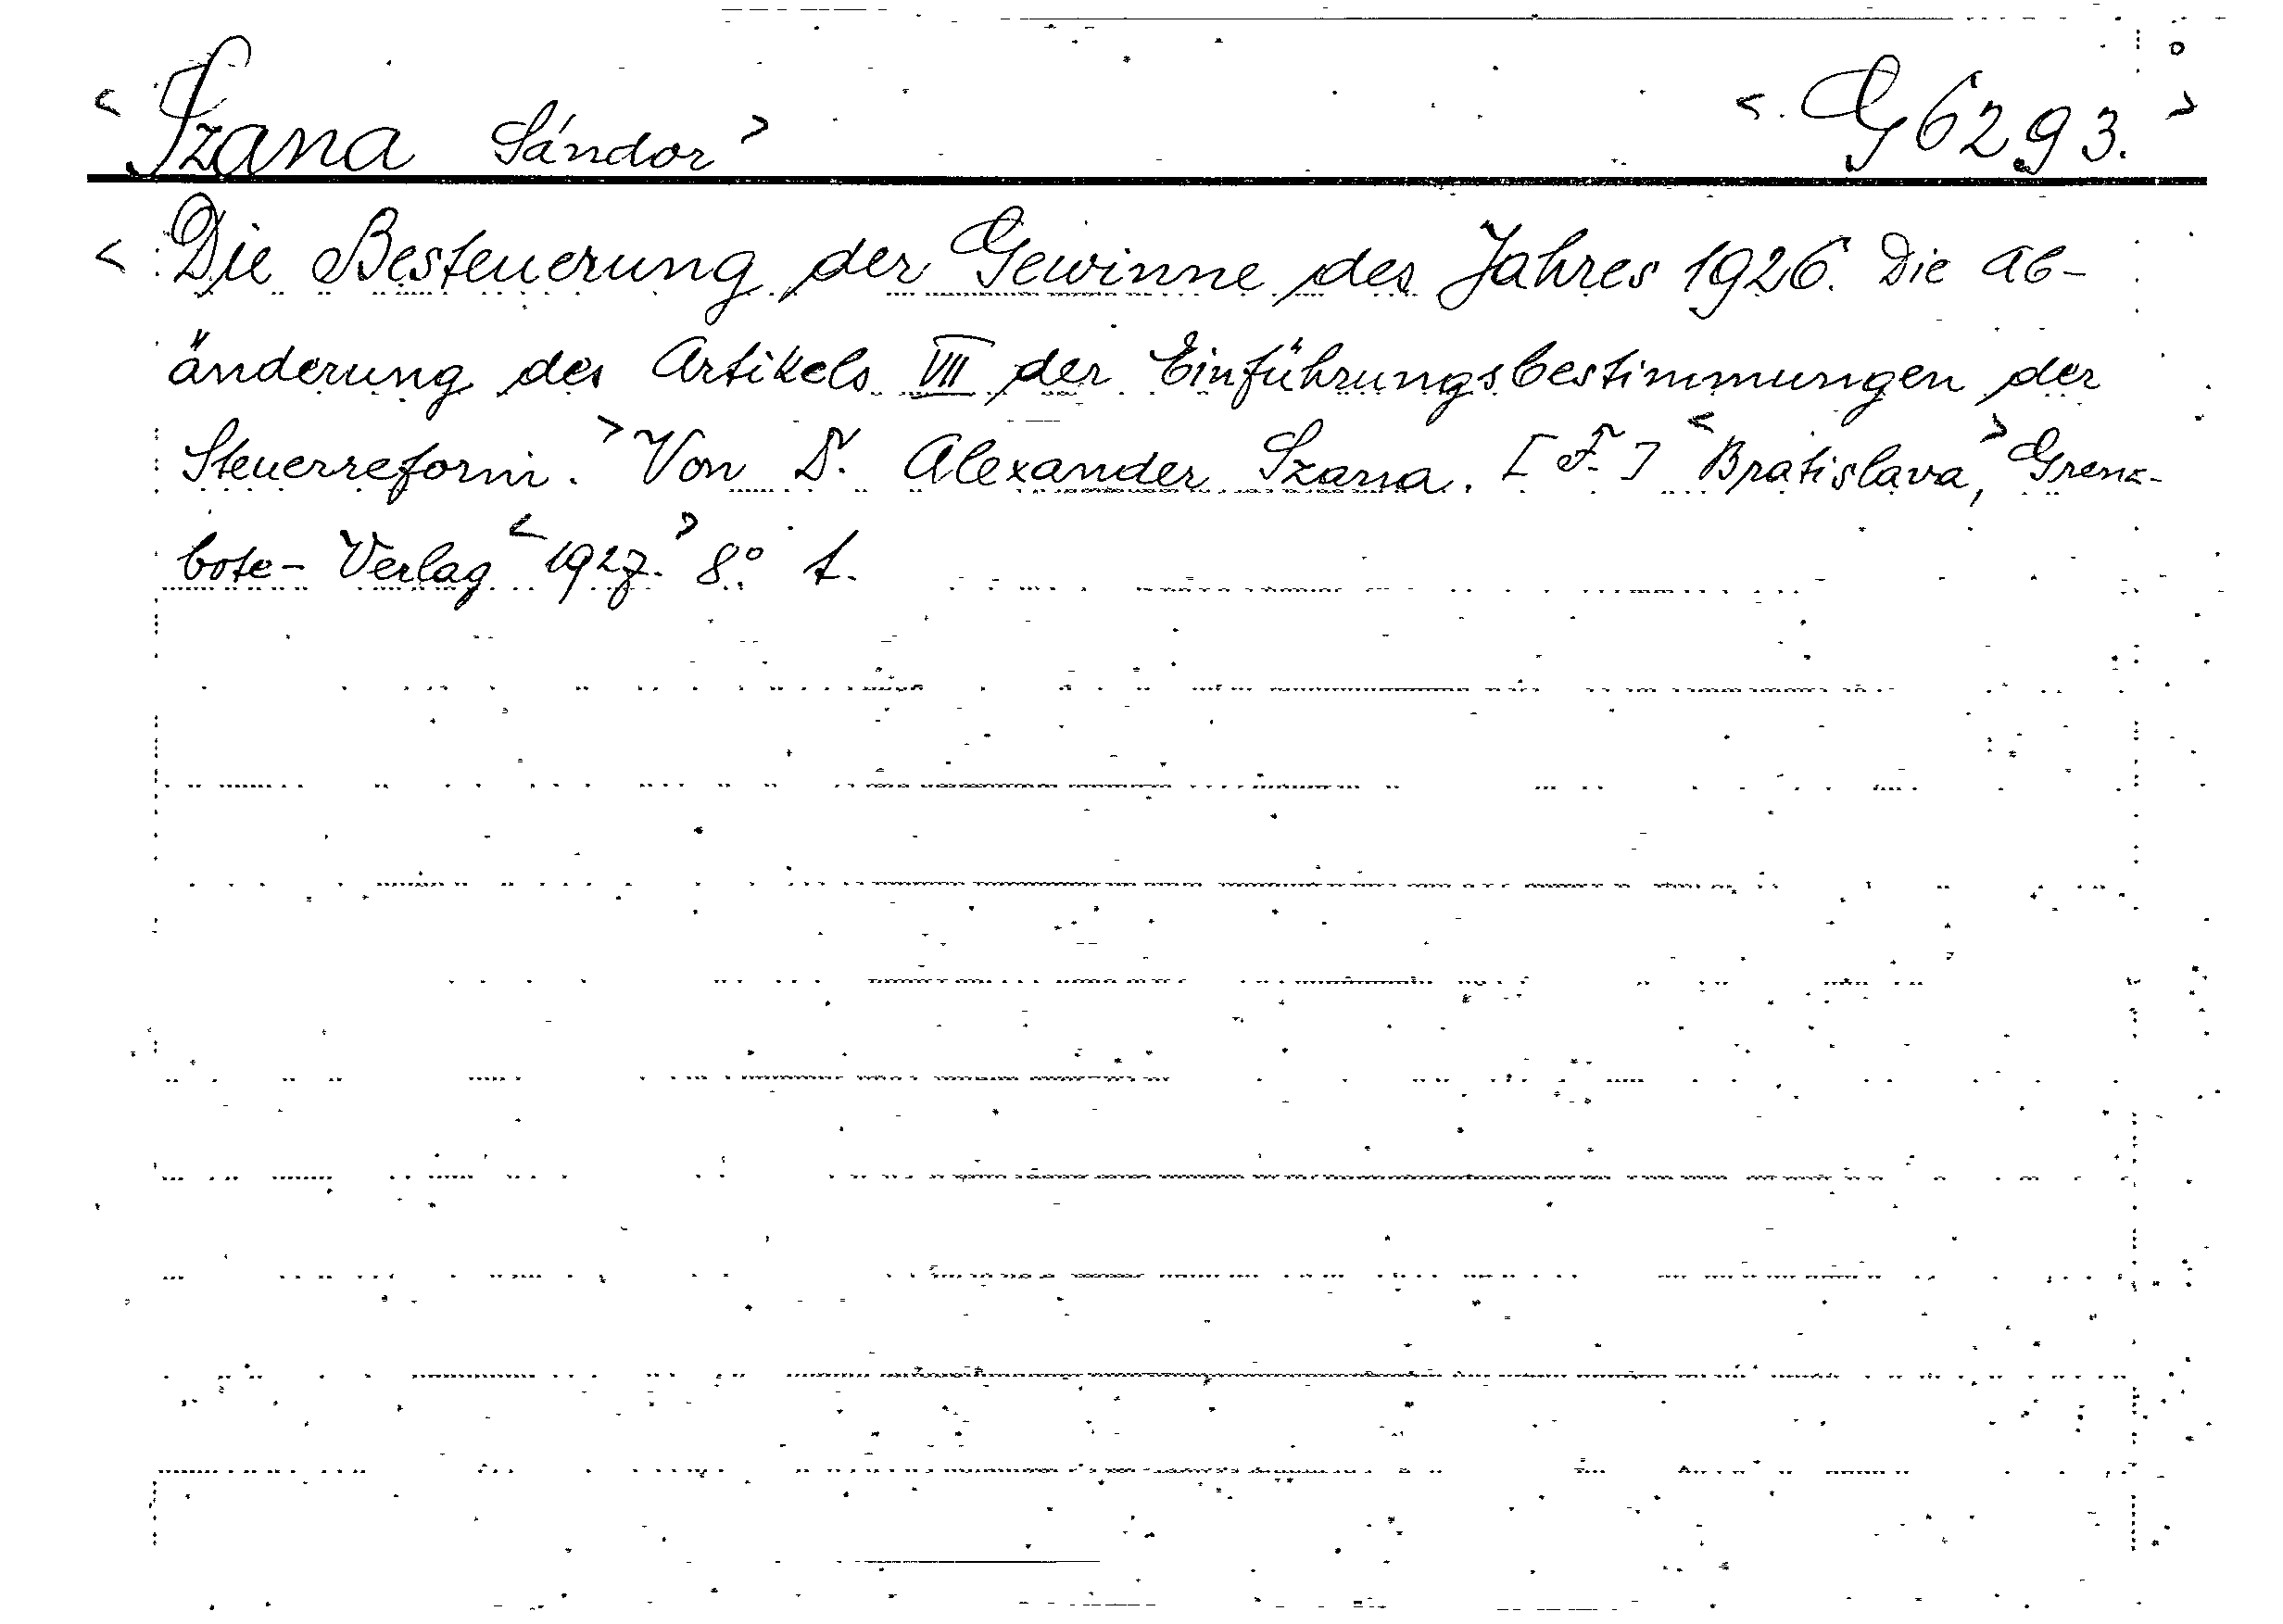 < Szana Sándor > < G 6293. >
< Die Besteuerung der Gewinne des Jahres 1926. Die Ab-
änderung des Artikels VII der Einführungsbestimmungen der
Steuerreform. > Von Dr. Alexander Szana. [F.] < Bratislava, > Grenz-
bote- Verlag < 1927. > 8° t.